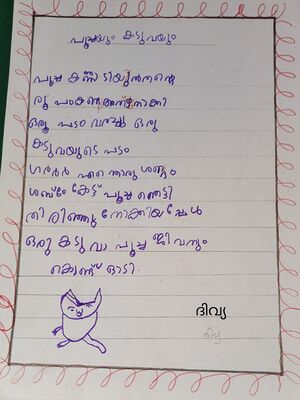 പൂച്ചയും കടുവയും
പൂച്ച കണ്ണാടിയുൽതന്റെ
രൂ പംകണ്ടു അതുനോക്കി
ഒരു പടം വരച്ചു ഒരു
കടുവയുടെ പടം
ഗർർർ എന്നൊരു ശബ്ദം
ശബ്ദം കേട്ട് പൂച്ച ഞെട്ടി
തിരിഞ്ഞു നോക്കിയപ്പേൾ
ഒരു കടുവാ പൂച്ച ജീവനും
കൊണ്ട് ഓടി.
ദിവ്യ
ദിവ്യ